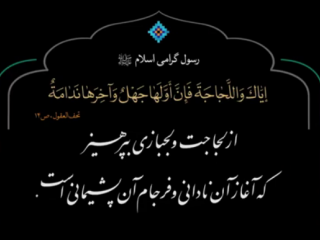 رسول گرامی اسلام ﷺ
اِيّاكَ وَاللَّجاجَةَ فَاِنَّ اَوَّلَها جَهْلٌ وَآخِرَها نَدامَةٌ
تحف‌العقول، ص۱۴
از لجاجت و لجبازی بپرهیز
که آغاز آن نادانی و فرجام آن پشیمانی است.